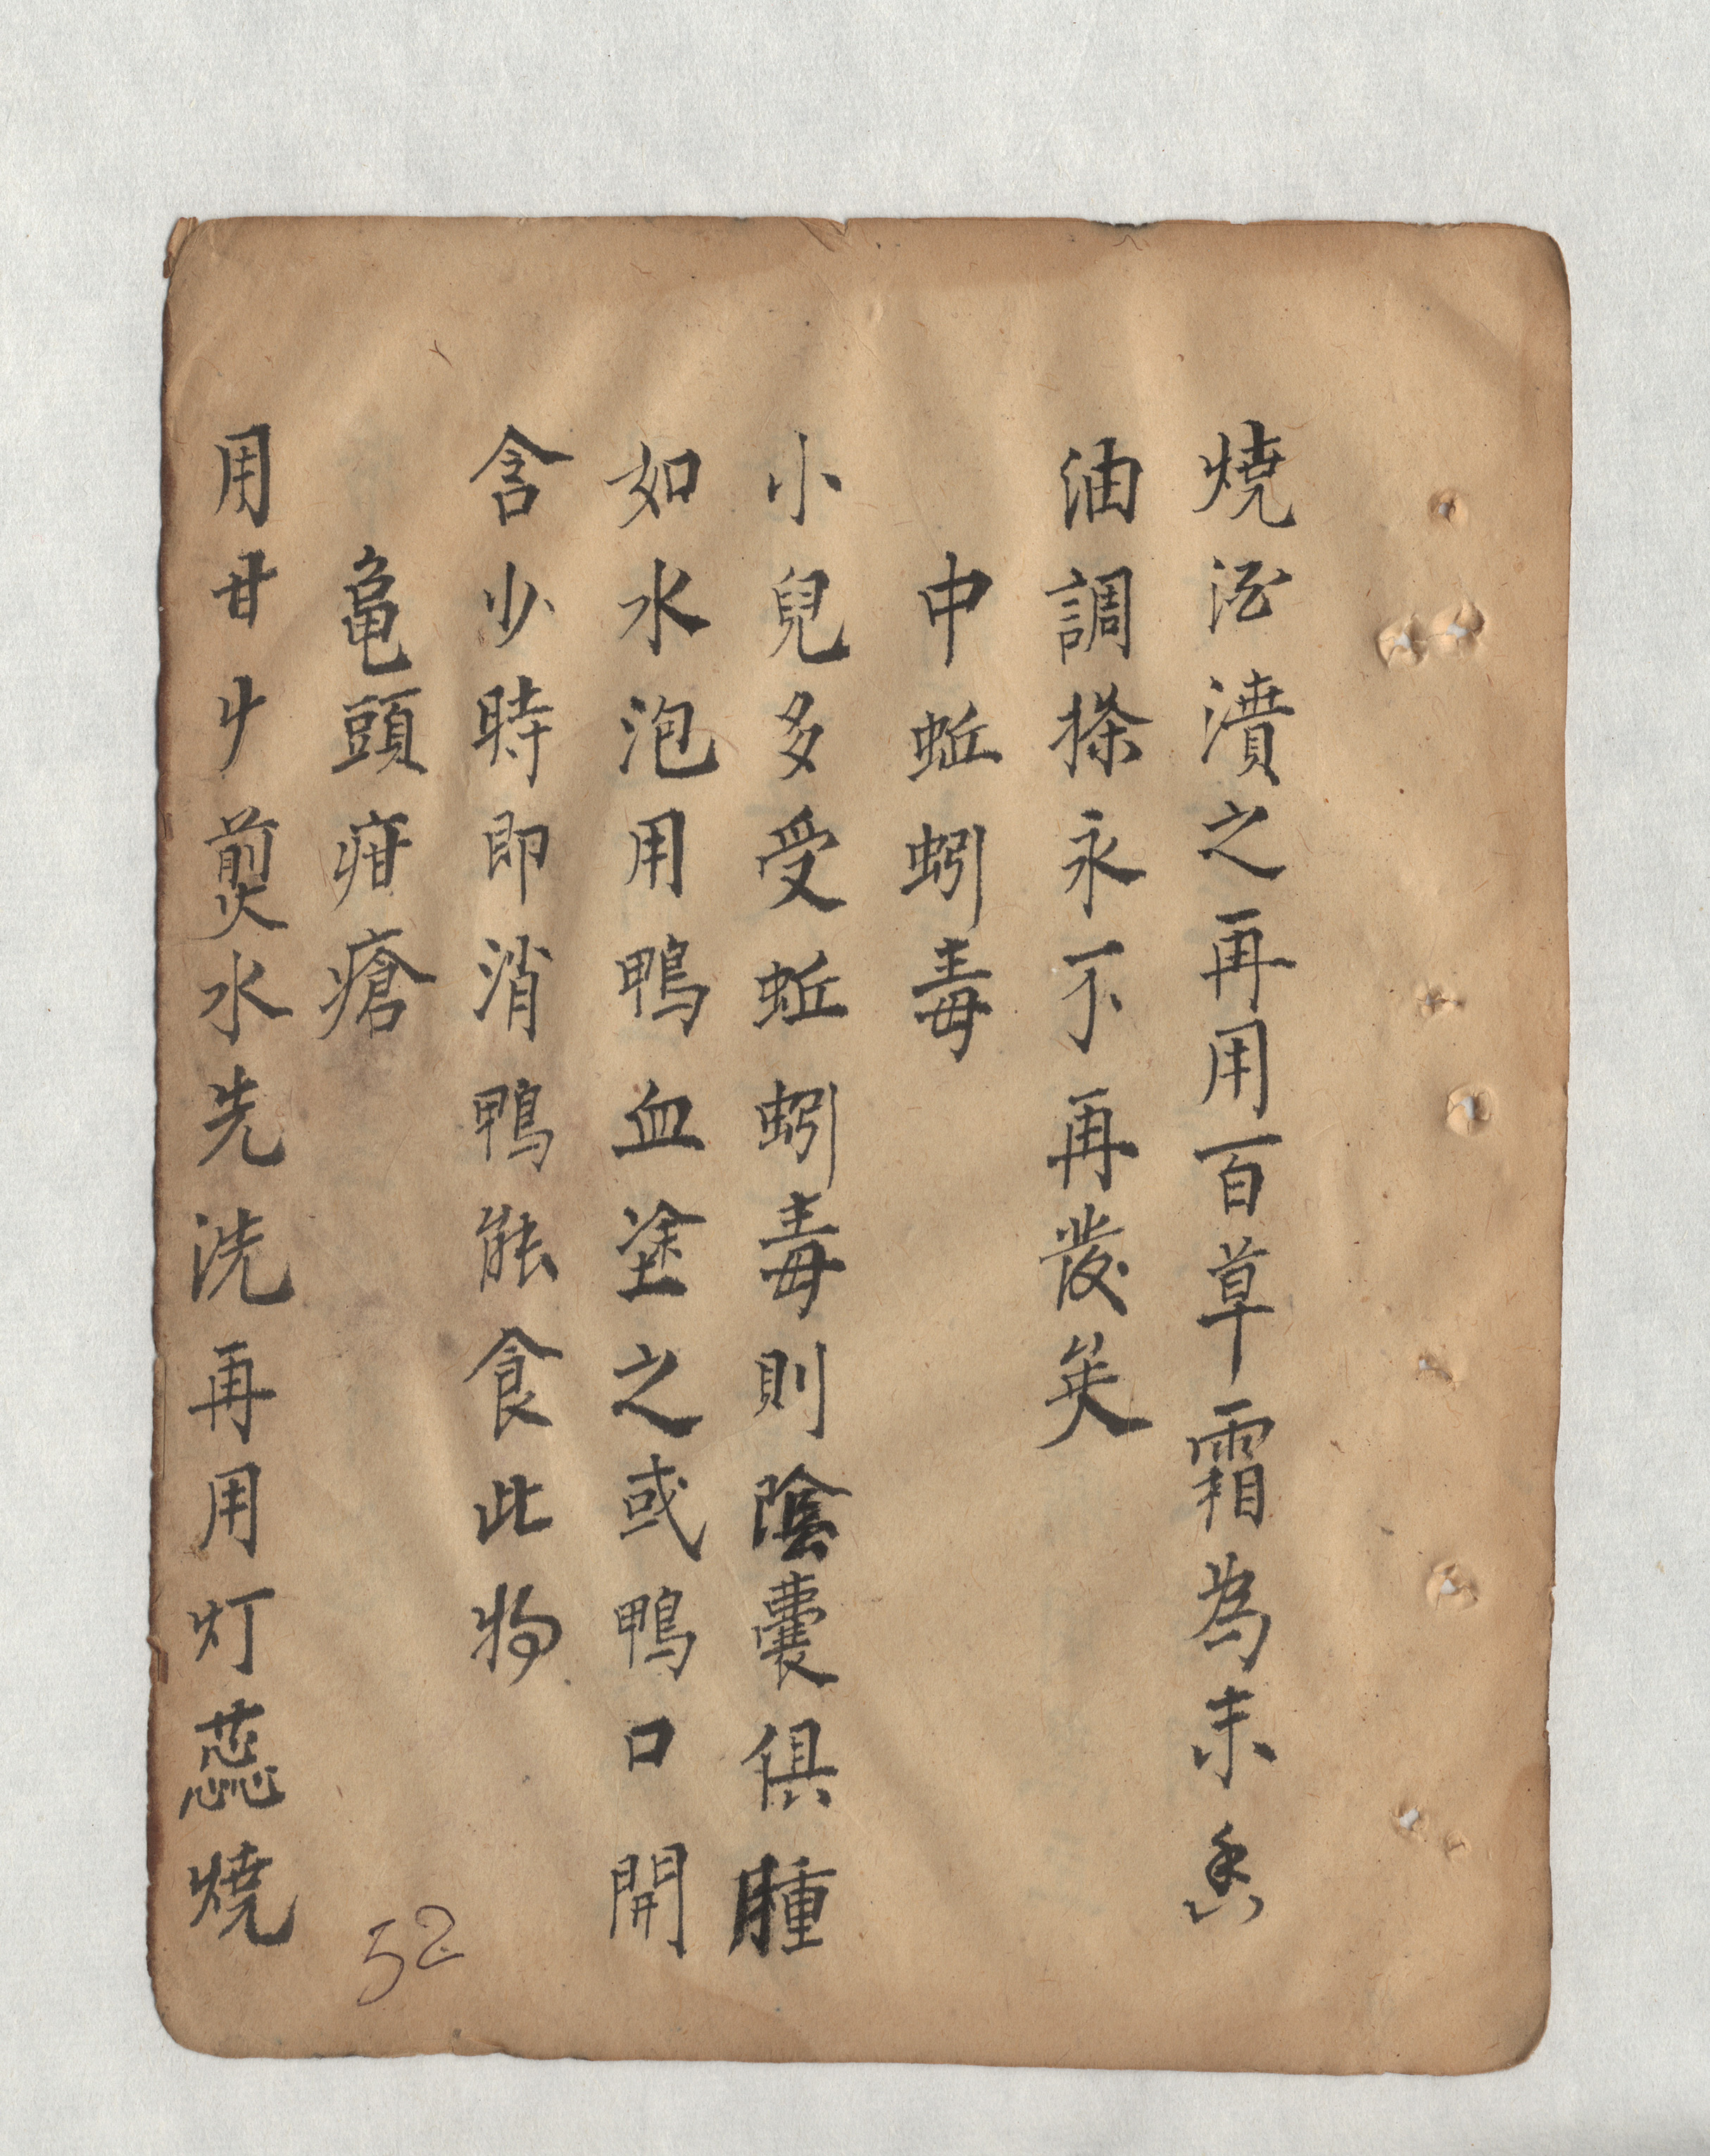 燒酒漬之再用百草霜為末香
油調搽永不再發矣
中蚯蚓毒
小兒多受蚯蚓毒則陰囊俱腫
如水泡用鴨血塗之或鴨口開
含少時即消鴨能食此物
亀頭疳瘡
用甘艸煎水先洗再用灯蕊燒
52